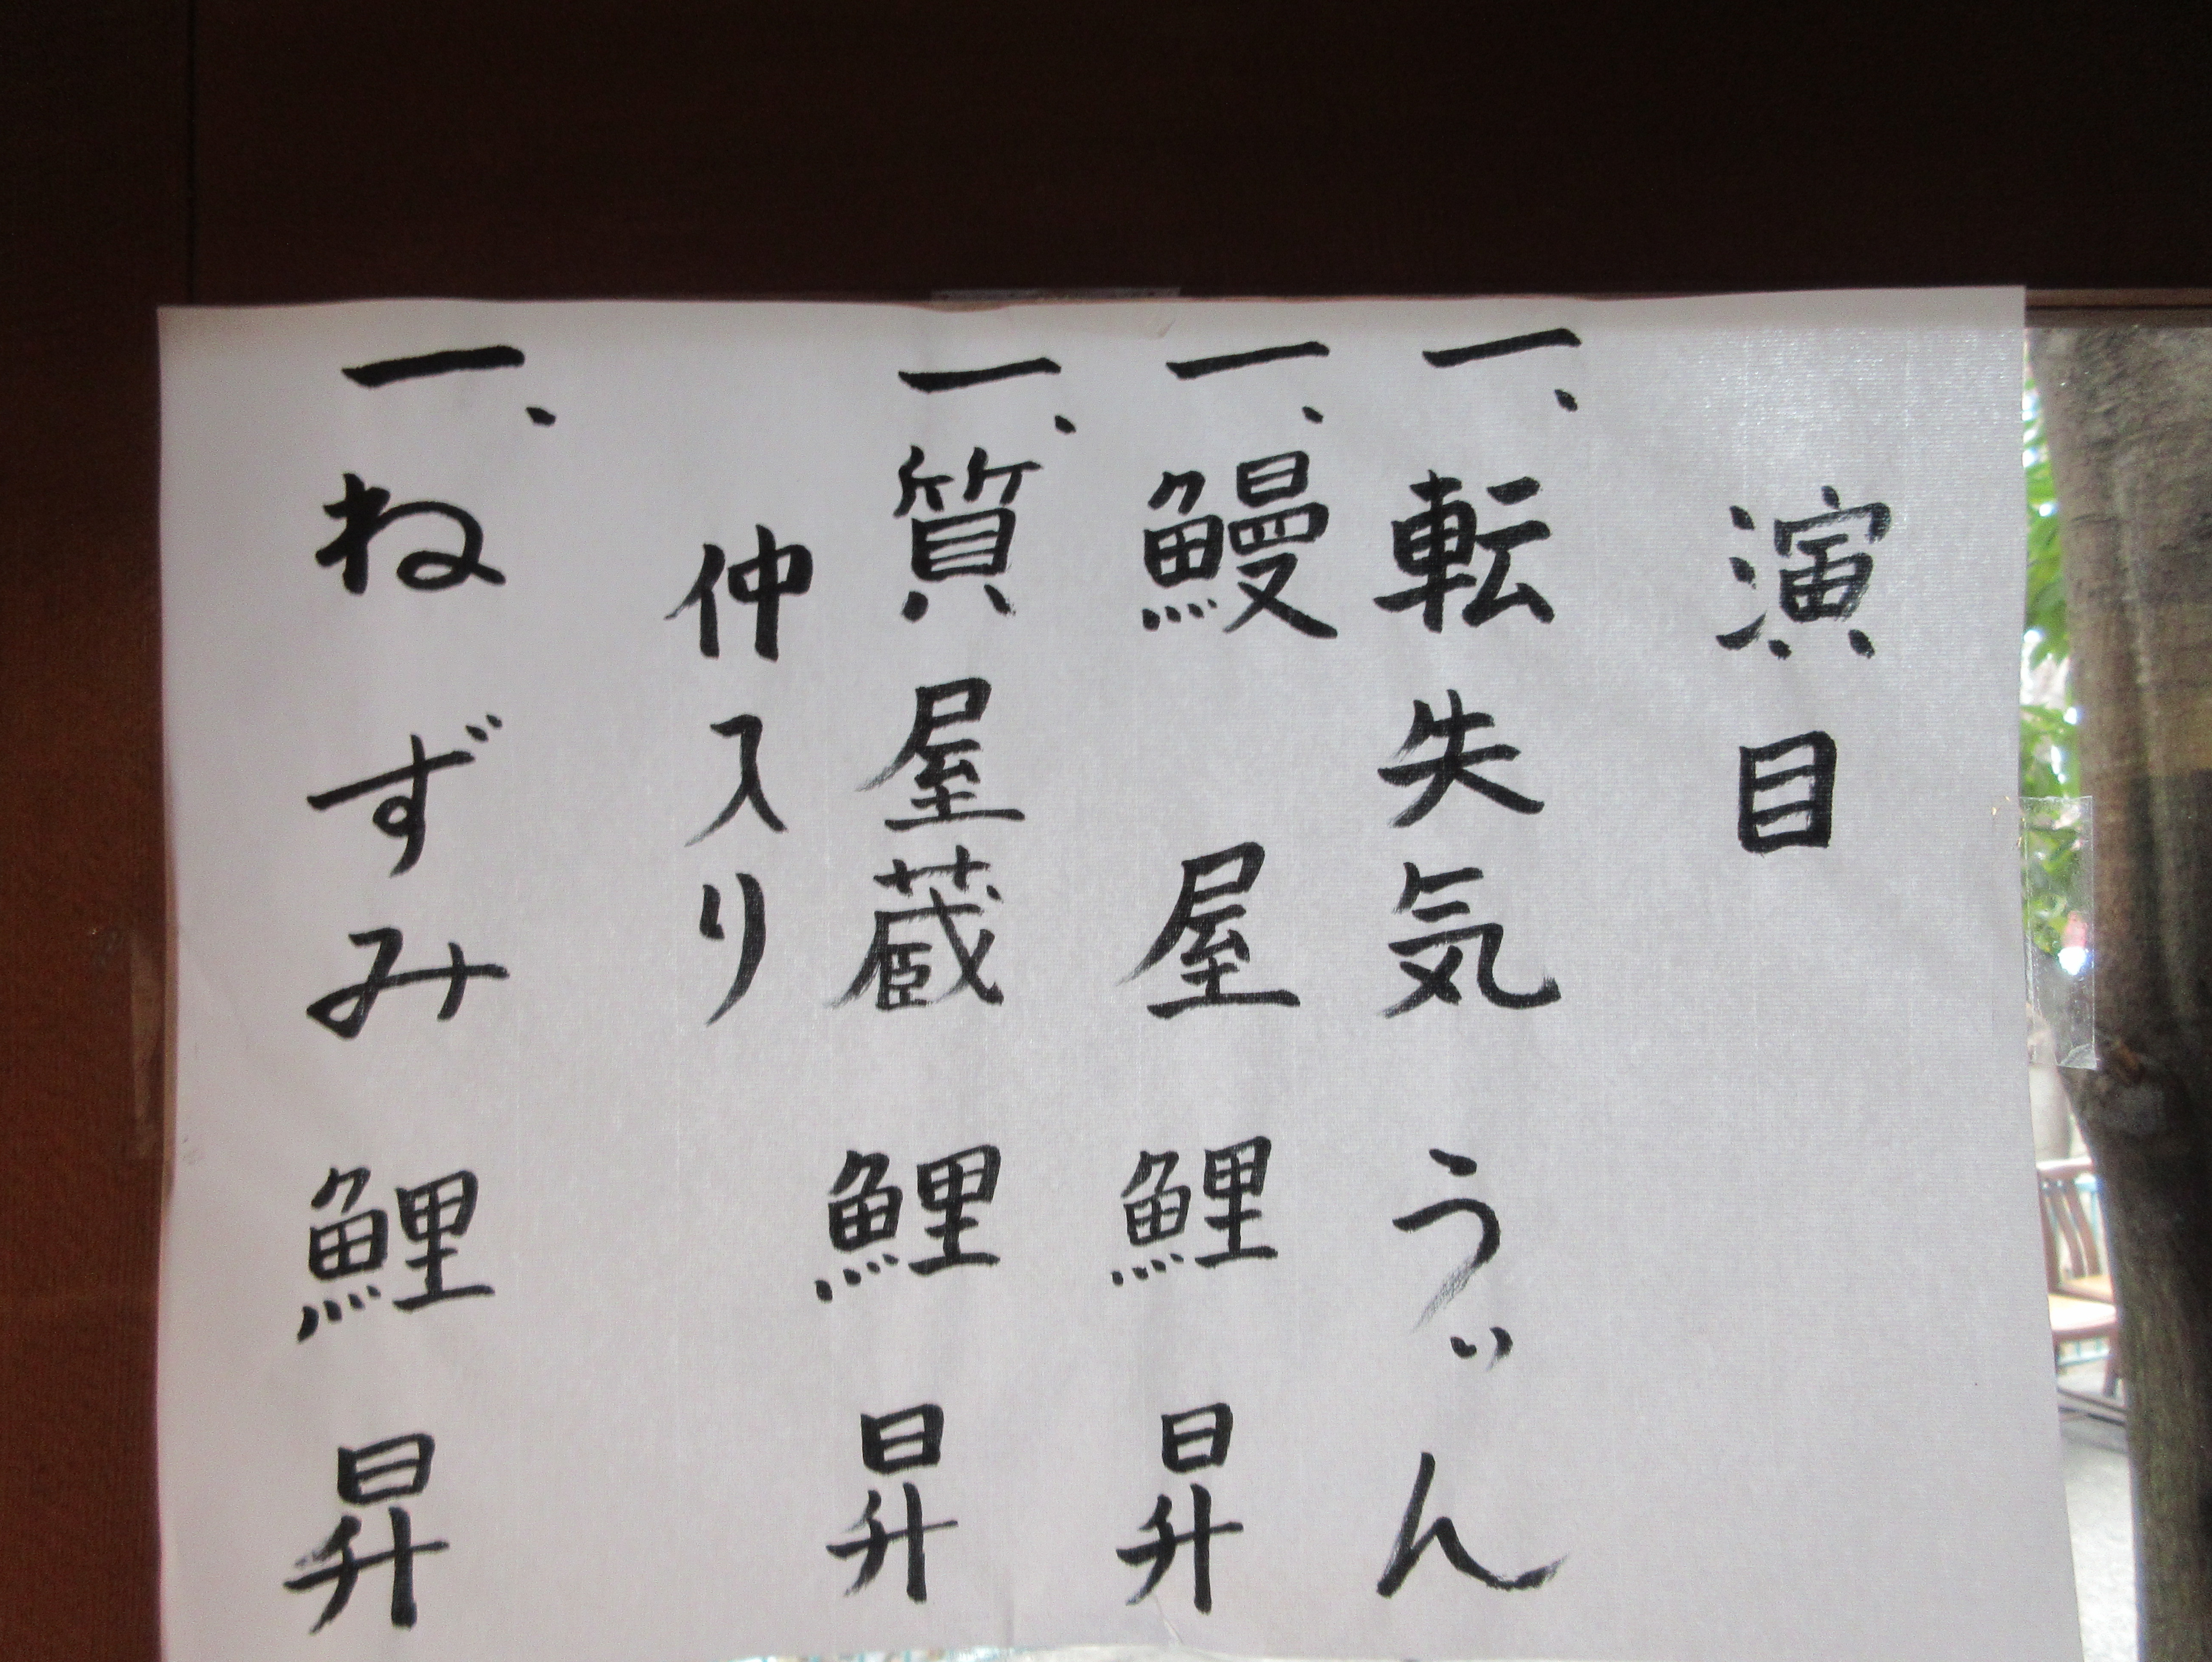 演目
一、転失気 う゛ん
一、鰻屋 鯉昇
一、質屋蔵 鯉昇
仲入り
一、ねずみ 鯉昇